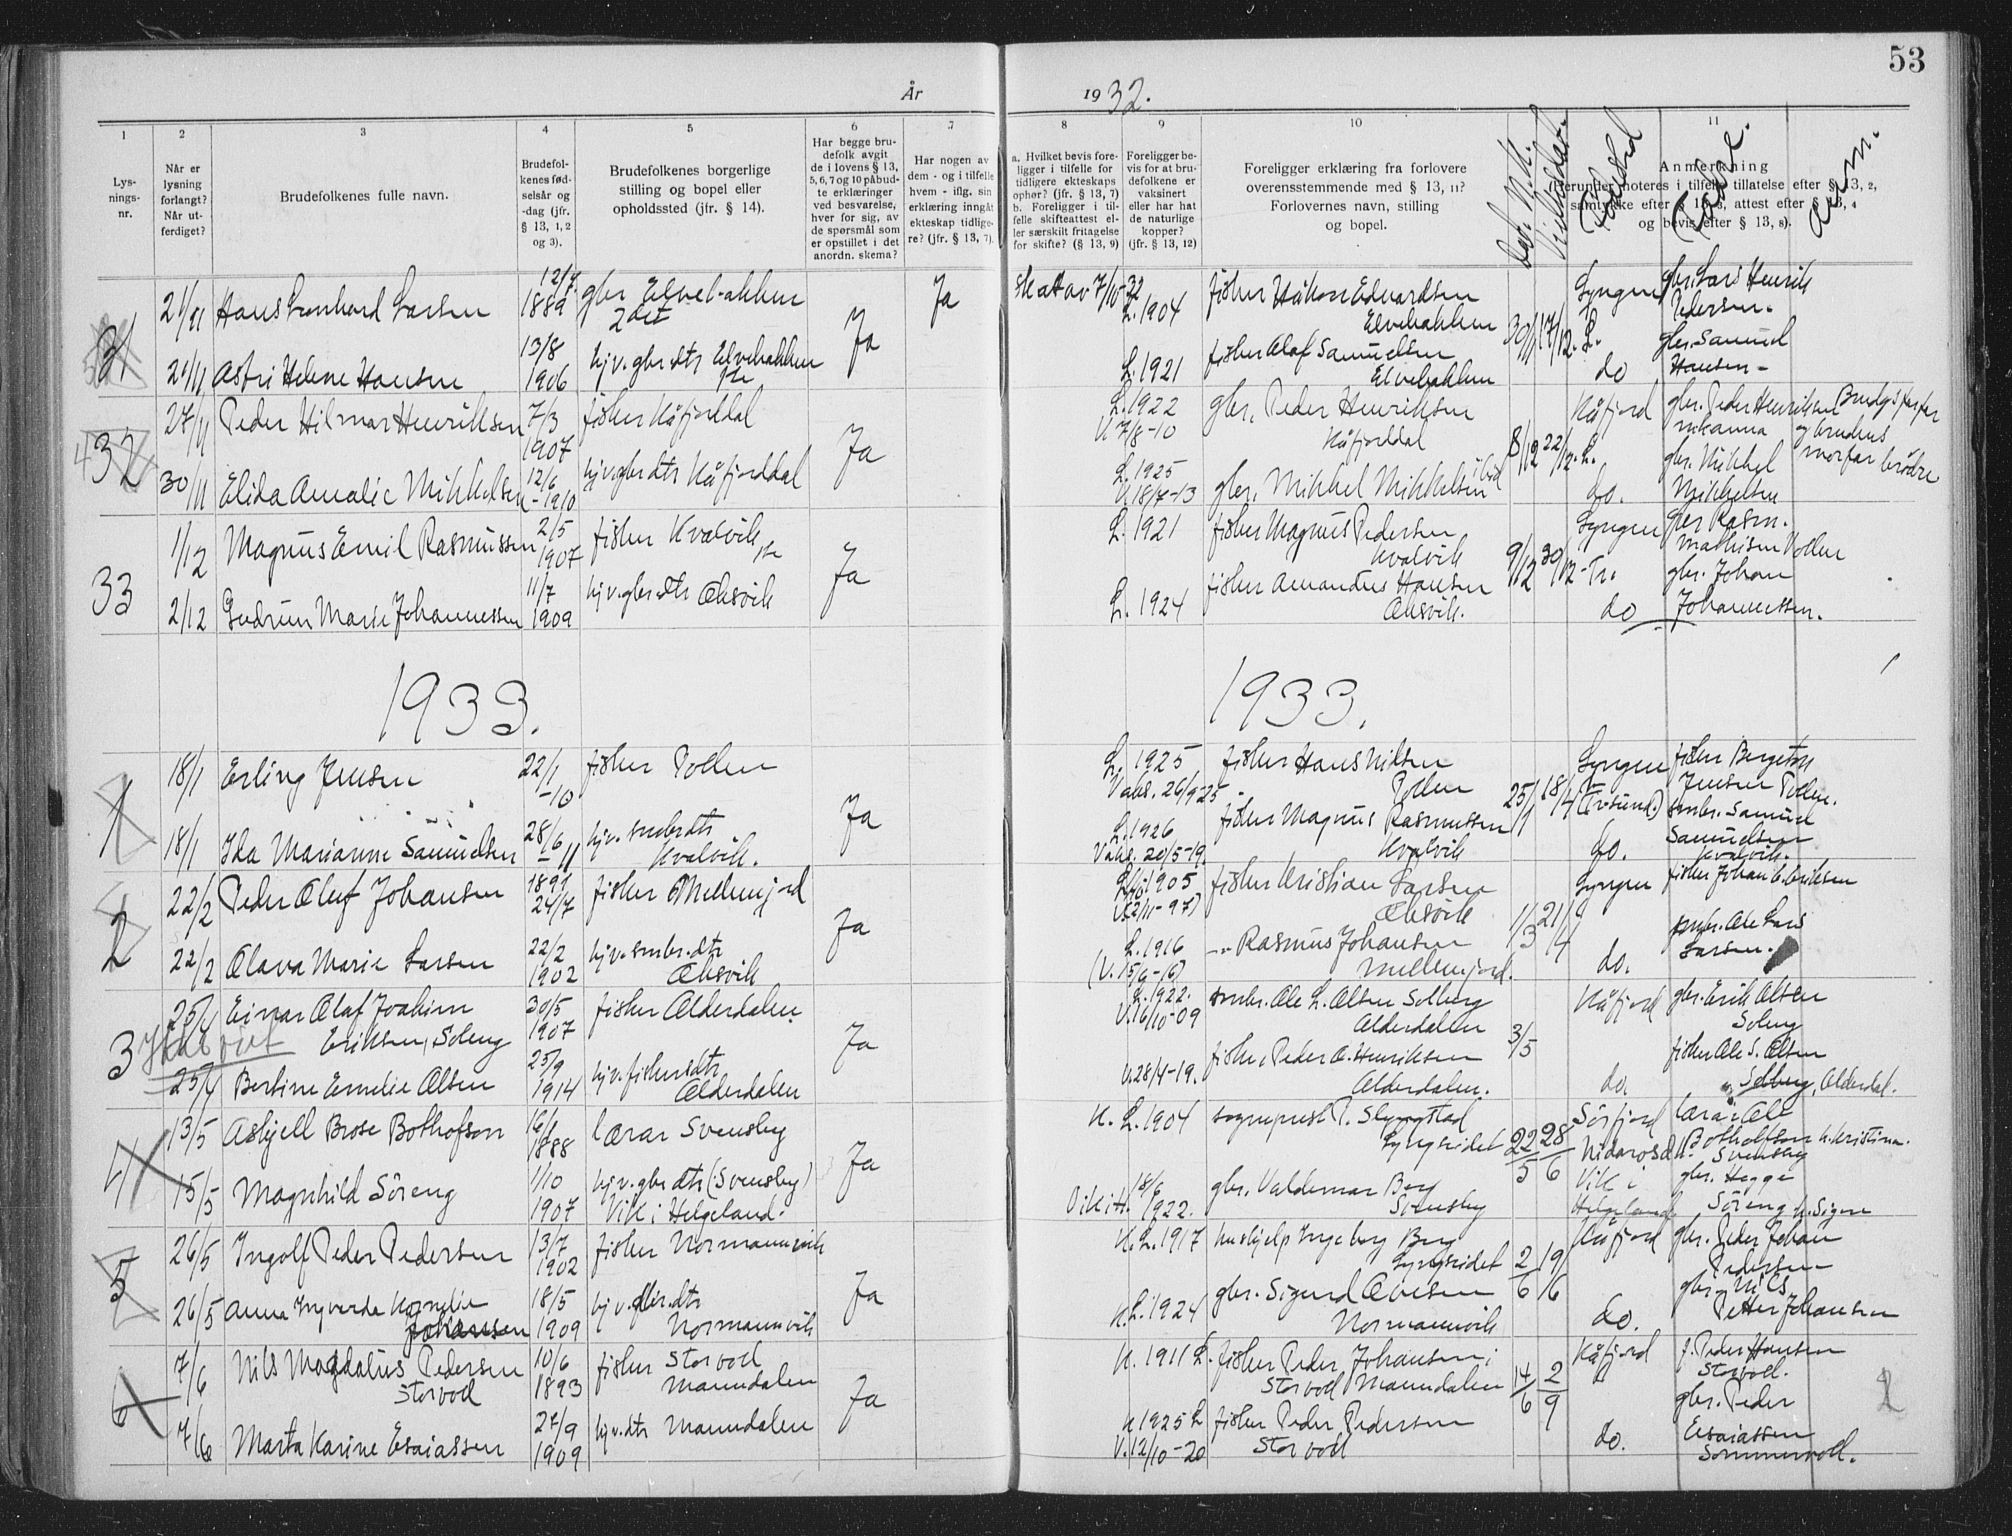 53
År 1932.
1 2 3 4 5 6 7 8 9 10 11
Lysningsnr.
Når er lysning forlangt? Når utferdiget?
Brudefolkenes fulle navn.
Brudefolkenes fødselsår og -dag (jfr. § 13, 1, 2 og 3).
Brudefolkenes borgerlige stilling og bopel eller opholdssted (jfr. § 14).
Har begge brudefolk avgit de i lovens § 13, 5, 6, 7 og 10 påbudte erklæringer ved besvarelse, hver for sig, av de spørsmål som er opstillet i det anordn. skema?
Har nogen av dem - og i tilfelle hvem - iflg. sin erklæring inngåt ekteskap tidligere? (jfr. § 13, 7).
a. Hvilket bevis foreligger i tilfelle for tidligere ekteskaps ophør? (§ 13, 7)
b. Foreligger i tilfelle skifteattest eller særskilt fritagelse for skifte? (§ 13, 9)
Foreligger bevis for at brudefolkene er vaksinert eller har hat de naturlige kopper? (jfr. § 13, 12)
Foreligger erklæring fra forlovere overensstemmende med § 13, 11? Forlovernes navn, stilling og bopel.
Anmerkning
(Herunder noteres i tilfelle tillatelse efter § 13, 2, samtykke efter § 13, 3, attest efter § 13, 4 og bevis efter § 13, 8).
Fødested
Fadre.
Anm.
31 21/11 Hans Leonhard Larsen 12/7 1889 gbr Elvebakken 2det Ja Ja Skat av 7/10-32 L. 1904 fisker Håkon Edvardsen Elvebakken 30/11 17/12. L. Lyngen gbr. Lars Henrik Pedersen.
21/11 Astri Helene Hansen 13/8 1906 hjv. gbr dtr Elvebakken L. 1921 fisker Olaf Samuelsen Elvebakken do gbr. Samuel Hansen
32 27/11 Peder Hilmar Henriksen 7/3 1907 fisker Kåfjorddal Ja L. 1922 V. 7/8-10 gbr. Peder Henriksen Kåfjorddal 8/12 22/12. L. Kåfjord gbr. Peder Henriksen Brudgs farfar og brudens morfar brødre
30/11 Elida Amalie Mikkelsen 12/6 -1910 hjv. gbr dtr Kåfjorddal L. 1925 V. 18/7-13 gbr. Mikkel Mikkelsen do. gbr. Mikkel Mikkelsen
33 1/12 Magnus Emil Rasmussen 2/5 1907 fisker Kvalvik Ja L. 1921 fisker Magnus Pedersen Kvalvik 9/12 30/12 - Tr. Lyngen gbr Rasm. Mathisen Pollen
2/12 Gudrun Marie Johannessen 11/7 1909 hjv. gbr dtr Oksvik L. 1924 fisker Amandus Hansen Oksvik. do gbr. Johan Johannessen.
1933. 1933.
1 18/1 Erling Jensen 22/1 -10 fisker Pollen Ja L. 1925 Vaks. 26/9 25 fisker Hans Nilsen Pollen 25/1 18/4 Lyngen (Tr.sund) fisker Bergeton Jensen Pollen.
18/1 Ida Marianne Samuelsen 28/6 -11 hjv. smbr dtr Kvalvik. L. 1926 Vaks. 20/5-19. fisker Magnus Rasmussen Kvalvik do. smbr. Samuel Samuelsen Kvalvik.
2 22/2 Peder Oluf Johansen 1897 24/7 fisker Mellemjord Ja 1905 fisker Kristian Larsen Oksvik 1/3 21/4 Lyngen fisker Johan Eriksen
22/2 Olava Marie Larsen 22/2 1902 hjv. smbr. dtr Oksvik L. 1916 -"- Rasmus Johansen Mellemjord. do. smbr. Ole Lars Larsen.
3 25/4 Einar Olaf Joakim Eriksen, Soleng 30/5 1907 fisker Olderdalen Ja L. 1922. V. 16/10-09 smbr. Ole L. Olsen Solberg Olderdalen 3/5 Kåfjord gbr. Erik Olsen Soleng
25/4 Bertine Emelie Olsen 25/9 1914 hjv. fiskersdtr Olderdalen V. 28/4-19. fisker Peder O. Henriksen Olderdalen. do. fisker Ole S. Olsen Solberg, Olderdal.
4 13/5 Asbjell Brose Bothofson 1888 lærar Svensby Ja K. L. 1904 sogneprest P. Slyngstad Lyngseidet 22/5 28/6 Sørfjord Nidaros lærar Ole Botholfson Svensby
15/5 Magnhild Søreng 1/10 1907 hjv. gbr dtr (Svensby) Vik i Helgeland. 8/6 1922. gbr. Valdemar Berg Svensby Vik i Helgeland gbr. Hegge Søreng h. Signe
5 26/5 Ingolf Peder Pedersen 13/7 1902 fisker Normannvik Ja K. L. 1917 hushjelp Ingeborg Berg Lyngseidet 2/6 19/6 Kåfjord gbr. Peder Johan Pedersen
26/5 Anna Ingverda Kornelie Johansen 18/5 1909 hjv. gbr. dtr Normannvik K. L. 1924 gbr. Sigurd Ovesen Normannvik do. gbr. Nils Petter Johansen
6 7/6 Nils Magdalus Pedersen Storvoll 10/6 1893 fisker Storvoll Manndalen Ja K. 1911 L. fisker Peder Johansen Storvoll Manndalen 14/6 2/9 Kåfjord f. Peder Hansen Storvoll.
7/6 Marta Karine Esaiassen 27/9 1909 hjv. dtr Manndalen K. 1925 L V. 12/10-20 fisker Peder Pedersen Storvoll do. gbr. Peder Esaiassen Sommervoll.